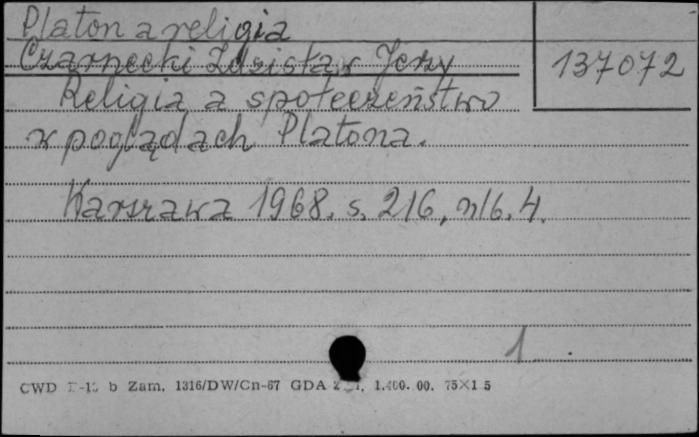 Platon a religia
Czarnecki Zdzisław Jerzy
137072
Religia a społeczeństwo
w poglądach Platona.
Warszawa 1968. s. 216, nlb. 4.
1.
CWD b Zam. 1316/DW/Cn-67 GDA 1.400.00. 75×1 5